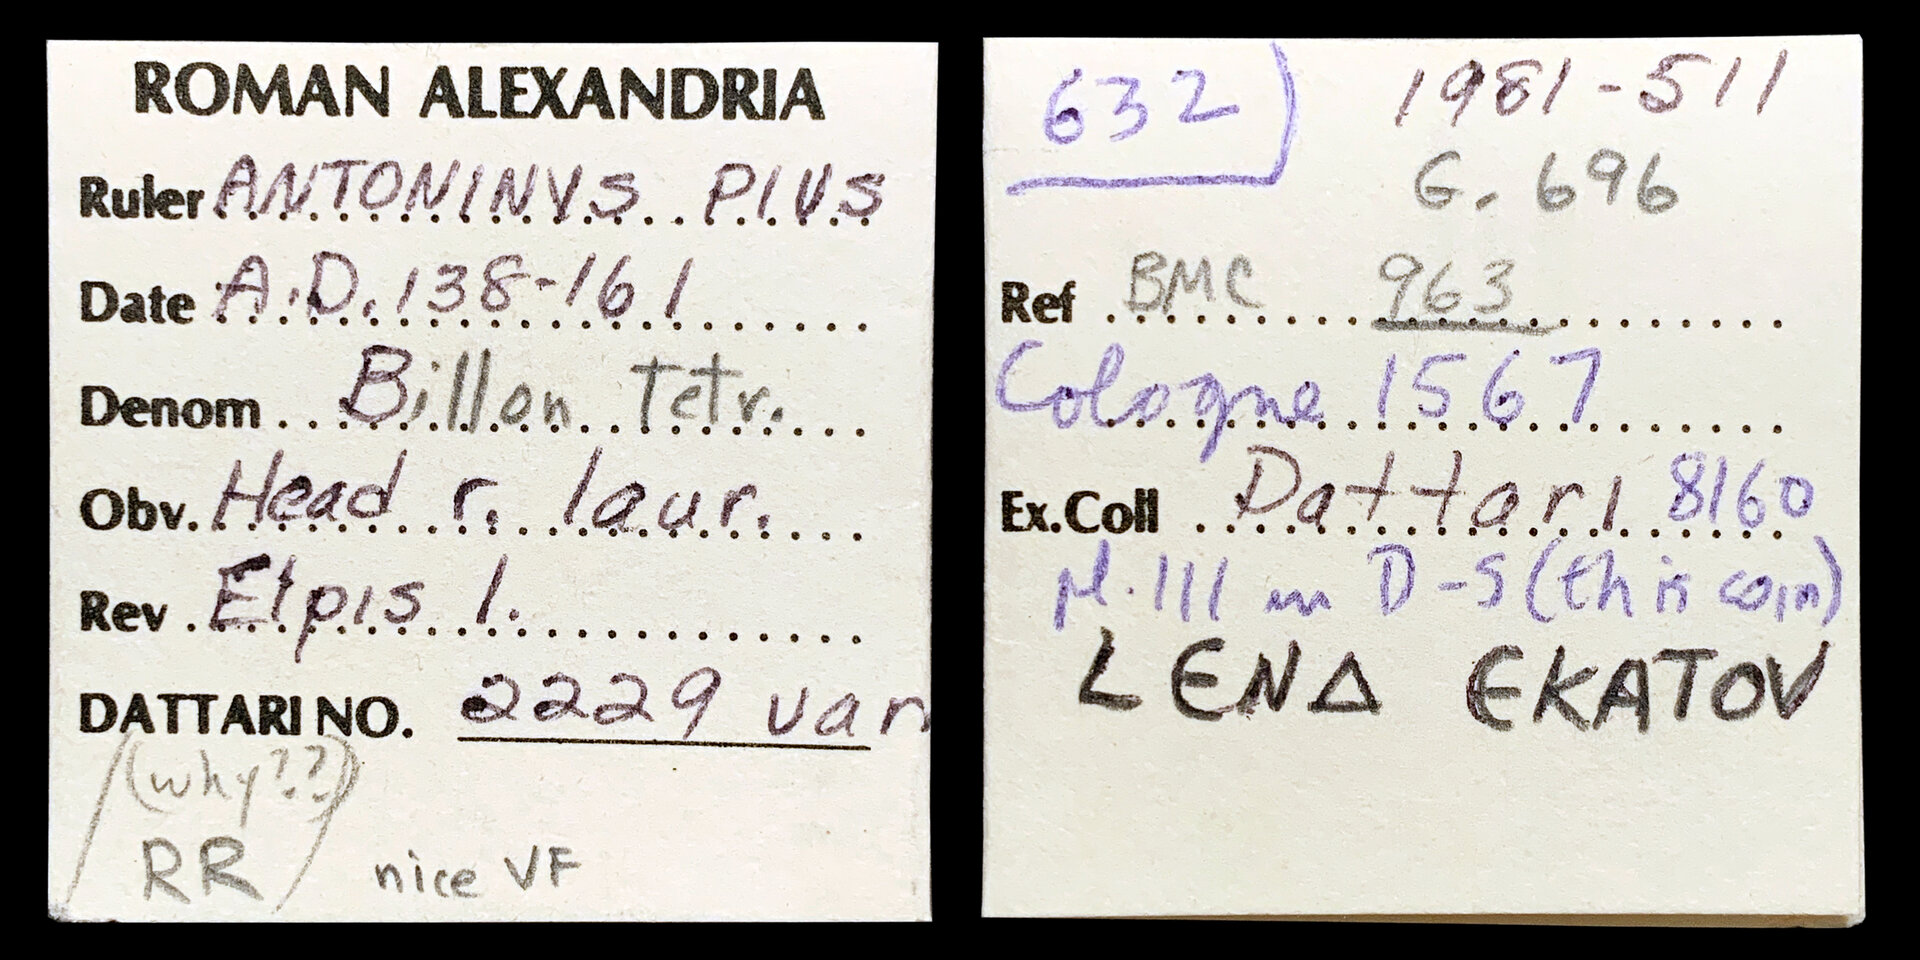 ROMAN ALEXANDRIA
Ruler ANTONINVS PIVS
Date A.D. 138-161
Denom Billon Tetr.
Obv. Head r. laur.
Rev Elpis l.
DATTARI NO. 2229 var
(why??)
RR
nice VF
632
1981-511
G. 696
Ref BMC 963
Cologne 1567
Ex.Coll Dattari 8160
pl. 111 in D-S (this coin)
L ЄNΔ ЄKATOV